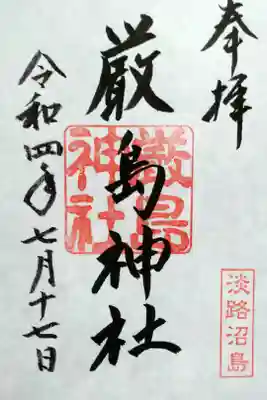 奉拝
厳島神社
厳島
神社
令和四年七月十七日
淡路沼島